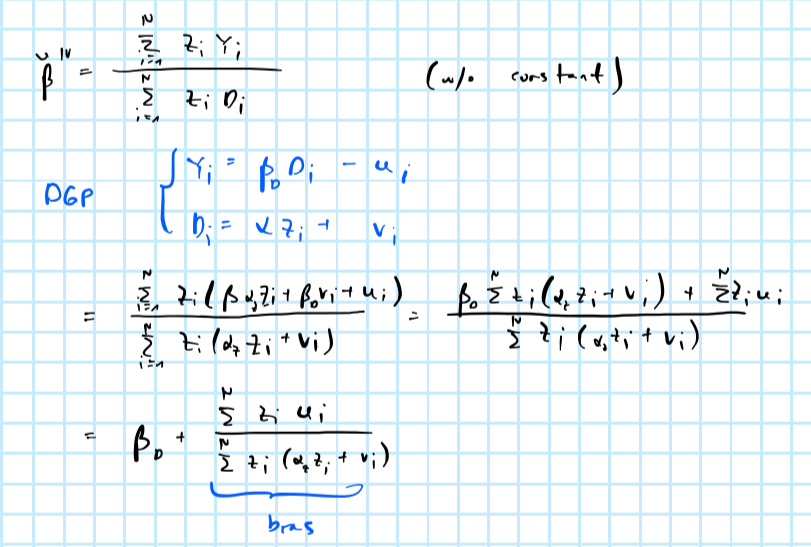 β̌^IV = \frac{\sum_{i=1}^{N} z_i Y_i}{\sum_{i=1}^{N} z_i D_i} (w/o constant)
DGP { Y_i = β_D D_i - u_i
D_i = α z_i + v_i
= \frac{\sum_{i=1}^{N} z_i (β α_z z_i + β_D v_i + u_i)}{\sum_{i=1}^{N} z_i (α_z z_i + v_i)} = \frac{β_D \sum^{N} z_i (α_z z_i + v_i) + \sum^{N} z_i u_i}{\sum^{N} z_i (α_z z_i + v_i)}
= β_D + \frac{\sum^{N} z_i u_i}{\sum^{N} z_i (α_z z_i + v_i)}
bias